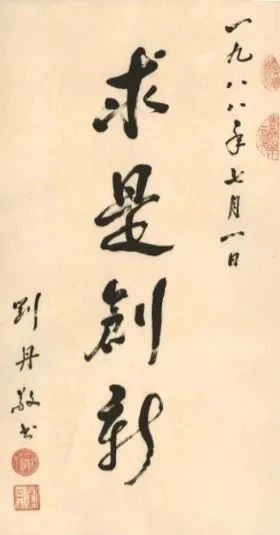 一九八八年七月一日
求是創新
劉丹敬书